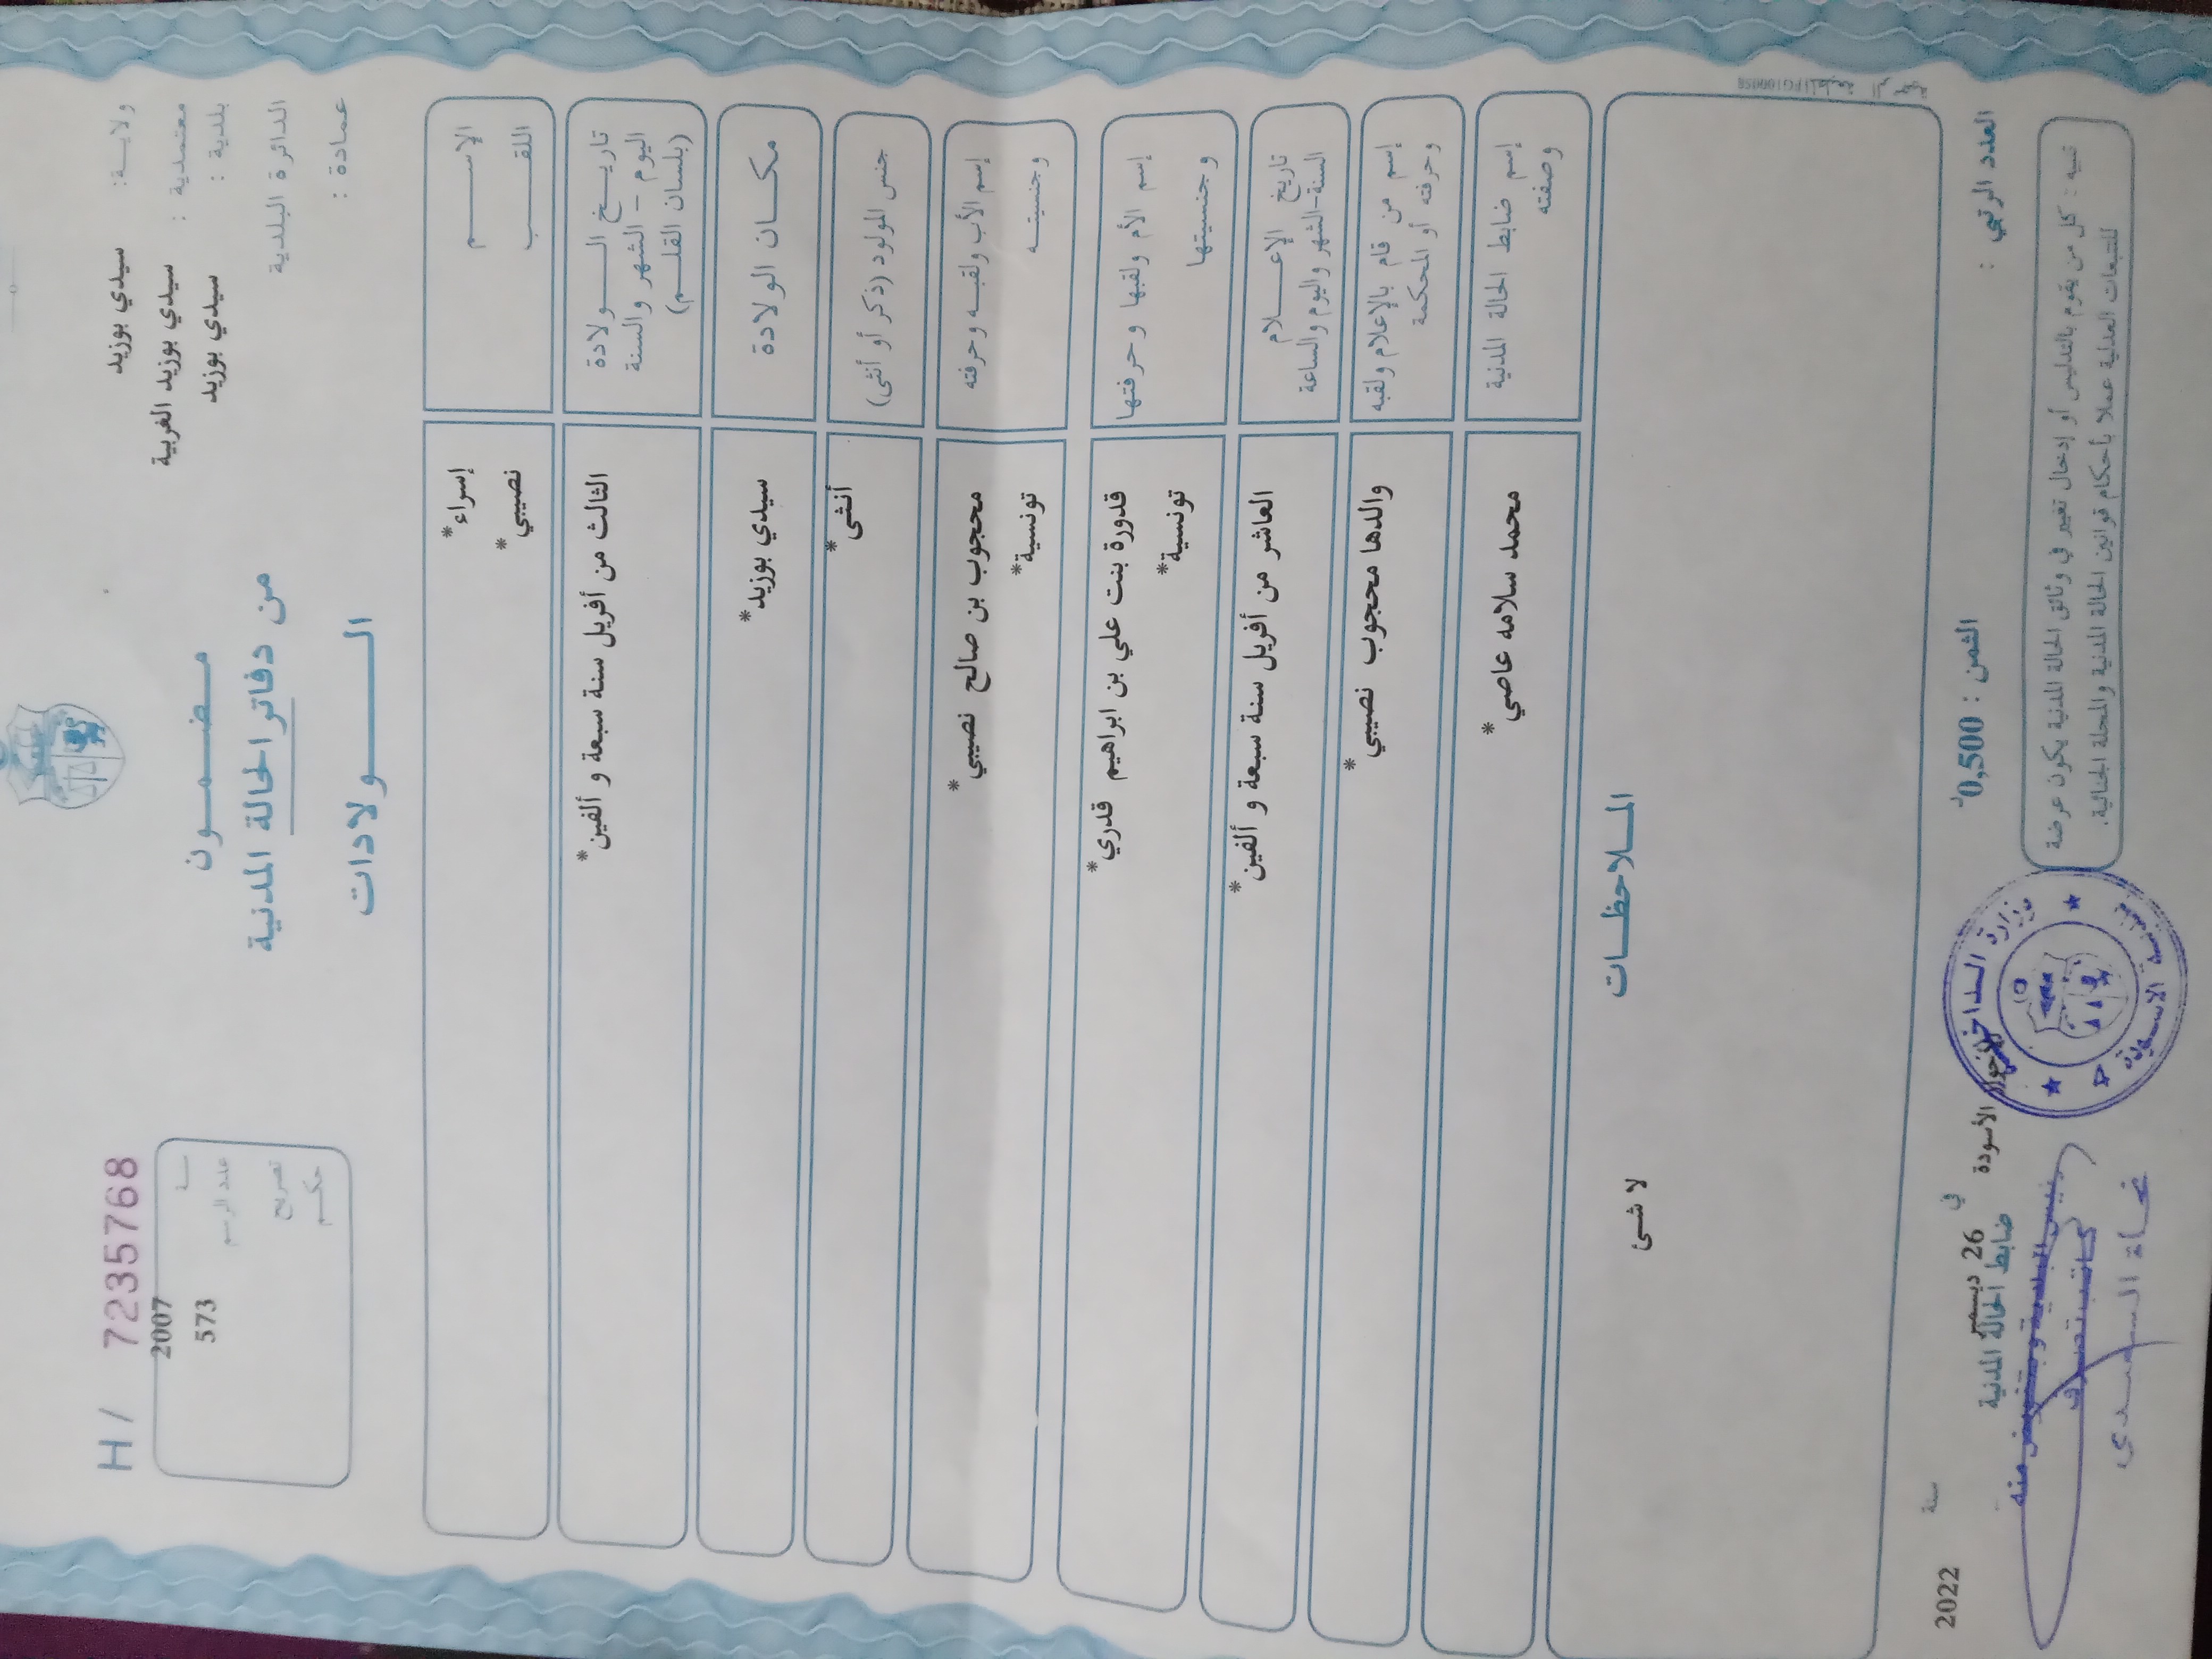 ولايـــة: سيدي بوزيد
معتمدية : سيدي بوزيد الغربية
بلدية : سيدي بوزيد
الدائرة البلدية
عمادة :
مـضـمـــون
من دفاتر الحالة المدنية
الـــــولادات
H / 7235768
سنة 2007
عدد الرسم 573
تصريح
حكـم
الإســـــم إسراء*
اللقـــب نصيبي*
تاريــخ الـــــولادة الثالث من أفريل سنة سبعة و ألفين*
اليوم – الشهر والسنة
(بلسان القلــم)
مكــان الولادة سيدي بوزيد*
جنس المولود (ذكر أو أنثى) أنثى*
إسم الأب ولقبـه وحرفته محجوب بن صالح نصيبي*
وجنسيتــه تونسية*
إسم الأم ولقبها وحرفتها قدورة بنت علي بن ابراهيم قدري*
وجنسيتها تونسية*
تاريخ الإعـــلام العاشر من أفريل سنة سبعة و ألفين*
السنة-الشهر واليوم والساعة
إسم من قام بالإعلام ولقبه والدها محجوب نصيبي*
وحرفته أو المحكمة
إسم ضابط الحالة المدنية محمد سلامه عاصي*
وصفته
المــلاحظــات
لا شئ
العدد الرتبي :
الثمن : 0,500د
الأسودة في 26 ديسمبر سنة 2022
ضابط الحالة المدنية
تنبيه : كل من يقوم بالتدليس أو إدخال تغيير في وثائق الحالة المدنية يكون عرضة
للتبعات العدلية عملا بأحكام قوانين الحالة المدنية والمجلة الجنائية.
وزارة الداخلية
رئيس البلدية وبتفويض منه
كاتب تصرف
نجاة السعيدي